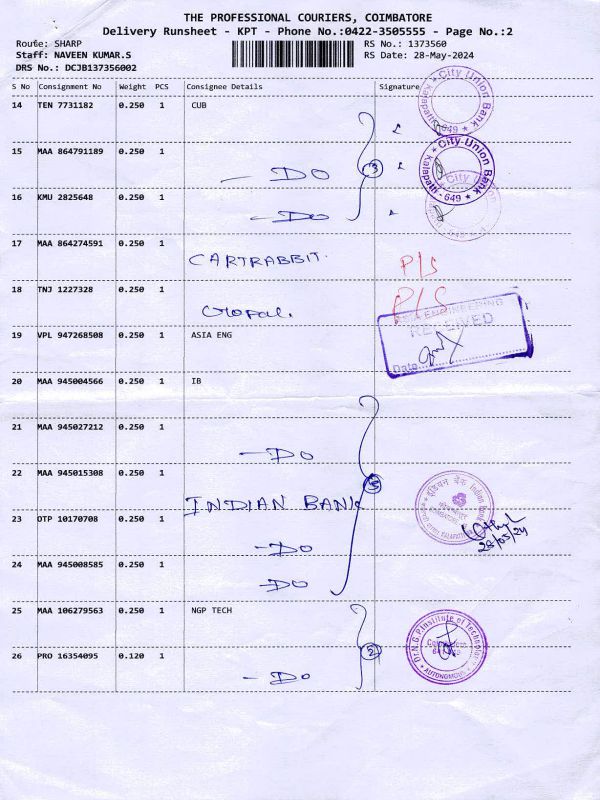 THE PROFESSIONAL COURIERS, COIMBATORE
Delivery Runsheet - KPT - Phone No.:0422-3505555 - Page No.:2
Route: SHARP
RS No.: 1373560
Staff: NAVEEN KUMAR.S
RS Date: 28-May-2024
DRS No.: DCJB137356002
S No Consignment No Weight PCS Consignee Details Signature
14 TEN 7731182 0.250 1 CUB
City Union Bank
Kalapatti - 649
15 MAA 864791189 0.250 1
- DO
3
City Union Bank
Kalapatti - 649
16 KMU 2825648 0.250 1
- DO
City Union
17 MAA 864274591 0.250 1
CARTRABBIT.
P/S
18 TNJ 1227328 0.250 1
Gopal.
P/S
19 VPL 947268508 0.250 1 ASIA ENG
ENGINEERING
RECEIVED
Date
20 MAA 945004566 0.250 1 IB
21 MAA 945027212 0.250 1
- DO
22 MAA 945015308 0.250 1
5
INDIAN BANK
इंडियन बैंक Indian Bank
23 OTP 10170708 0.250 1
- DO
28/05/24
24 MAA 945008585 0.250 1
- DO
25 MAA 106279563 0.250 1 NGP TECH
Dr.N.G.P.Institute of Technology
AUTONOMOUS
26 PRO 16354095 0.120 1
2
- DO